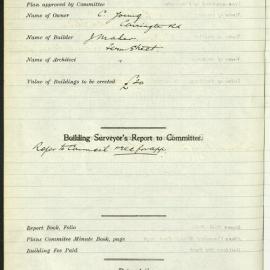 Plan approved by Committee
Name of Owner C. Young
Name of Builder J. Maher
Name of Architect "
Value of Buildings to be erected £20
Building Surveyor's Report to Committee.
Refer to Council rec for app
Report Book, Folio
Plans Committee Minute Book, page
Building Fee Paid